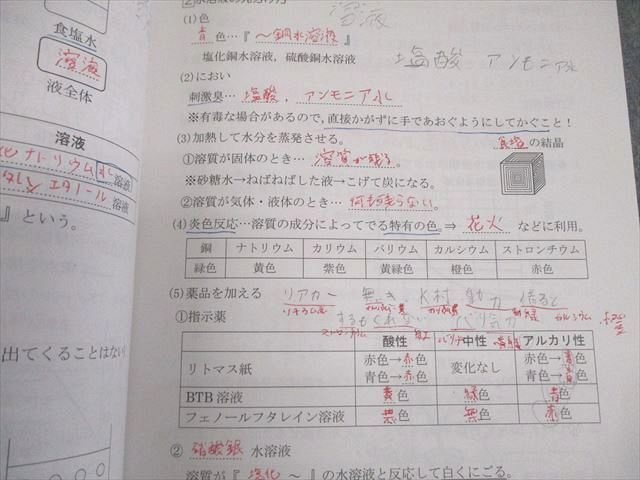 食塩水
溶液
液全体
溶液
ナトリウム水溶液
エタノール溶液
』という。
出てくることはない
溶液
(1)色
青色…『～銅水溶液』
塩化銅水溶液，硫酸銅水溶液
塩酸 アンモニア水
(2)におい
刺激臭…塩酸，アンモニア水
※有毒な場合があるので，直接かがずに手であおぐようにしてかぐこと！
(3)加熱して水分を蒸発させる。
食塩の結晶
①溶質が固体のとき…溶質が残る。
※砂糖水→ねばねばした液→こげて炭になる。
②溶質が気体・液体のとき…何も残らない。
(4)炎色反応…溶質の成分によってでる特有の色 ⇒ 花火 などに利用。
銅 ナトリウム カリウム バリウム カルシウム ストロンチウム
緑色 黄色 紫色 黄緑色 橙色 赤色
(5)薬品を加える
リアカー 無き K村 動力 借ると
リチウム赤
①指示薬
するもくれない 馬力
ストロンチウム
酸性 中性 アルカリ性
リトマス紙 赤色→赤色 変化なし 赤色→青色
青色→赤色 青色→青色
BTB溶液 黄色 緑色 青色
フェノールフタレイン溶液 無色 無色 赤色
② 硝酸銀 水溶液
溶質が『塩化～』の水溶液と反応して白くにごる。